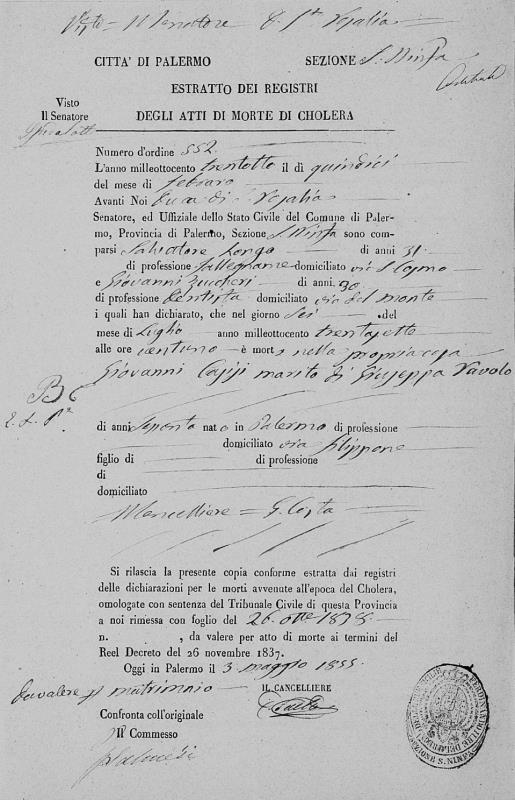 Visto = Il Senatore
CITTA' DI PALERMO SEZIONE S. Ninfa
ESTRATTO DEI REGISTRI
Visto
Il Senatore DEGLI ATTI DI MORTE DI CHOLERA
Numero d'ordine 552
L'anno milleottocento trentotto il dì quindici
del mese di febraro
Avanti Noi Duca di
Senatore, ed Uffiziale dello Stato Civile del Comune di Paler-
mo, Provincia di Palermo, Sezione S. Ninfa sono com-
parsi Salvatore Longo di anni 31
di professione fallegname domiciliato via
e Giovanni Zuccheri di anni 30
di professione Dentista domiciliato via del monte
i quali han dichiarato, che nel giorno sei del
mese di Luglio anno milleottocento trentasette
alle ore ventuno è morto nella propria casa
Giovanni marito di Giuseppa Vavolo
di anni nato in Palermo di professione
domiciliato via Filippone
figlio di di professione
di
domiciliato
Il Cancelliere = G. Costa
Si rilascia la presente copia conforme estratta dai registri
delle dichiarazioni per le morti avvenute all'epoca del Cholera,
omologate con sentenza del Tribunale Civile di questa Provincia
a noi rimessa con foglio del 26 ottre 1838
n. , da valere per atto di morte ai termini del
Reel Decreto del 26 novembre 1837.
Oggi in Palermo il 3 maggio 1855.
Da valere pl matrimonio IL CANCELLIERE
Confronta coll'originale
Il Commesso
SEZIONE S. NINFA